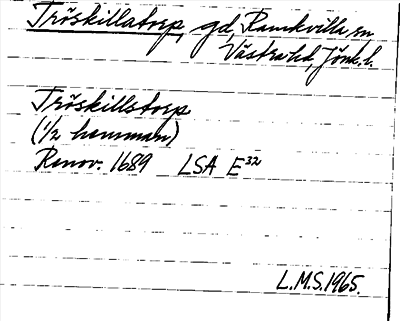 Tröskillatorp, gd, Ramkvilla sn
Västra hd, Jönk. l.
Tröskillstorp
(1/2 hemman)
Renov. 1689 LSA E32
L.M.S. 1965.